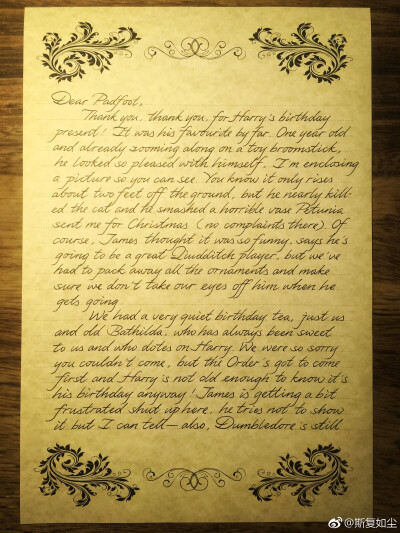 Dear Padfoot,
Thank you, thank you, for Harry's birthday
present! It was his favourite by far. One year old
and already zooming along on a toy broomstick,
he looked so pleased with himself, I'm enclosing
a picture so you can see. You know it only rises
about two feet off the ground, but he nearly kill-
ed the cat and he smashed a horrible vase Petunia
sent me for Christmas (no complaints there). Of
course, James thought it was so funny, says he's
going to be a great Quidditch player, but we've
had to pack away all the ornaments and make
sure we don't take our eyes off him when he
gets going.
We had a very quiet birthday tea, just us
and old Bathilda, who has always been sweet
to us and who dotes on Harry. We were so sorry
you couldn't come, but the Order's got to come
first and Harry's not old enough to know it's
his birthday anyway! James is getting a bit
frustrated shut up here, he tries not to show
it but I can tell — also, Dumbledore's still
@斯复如尘